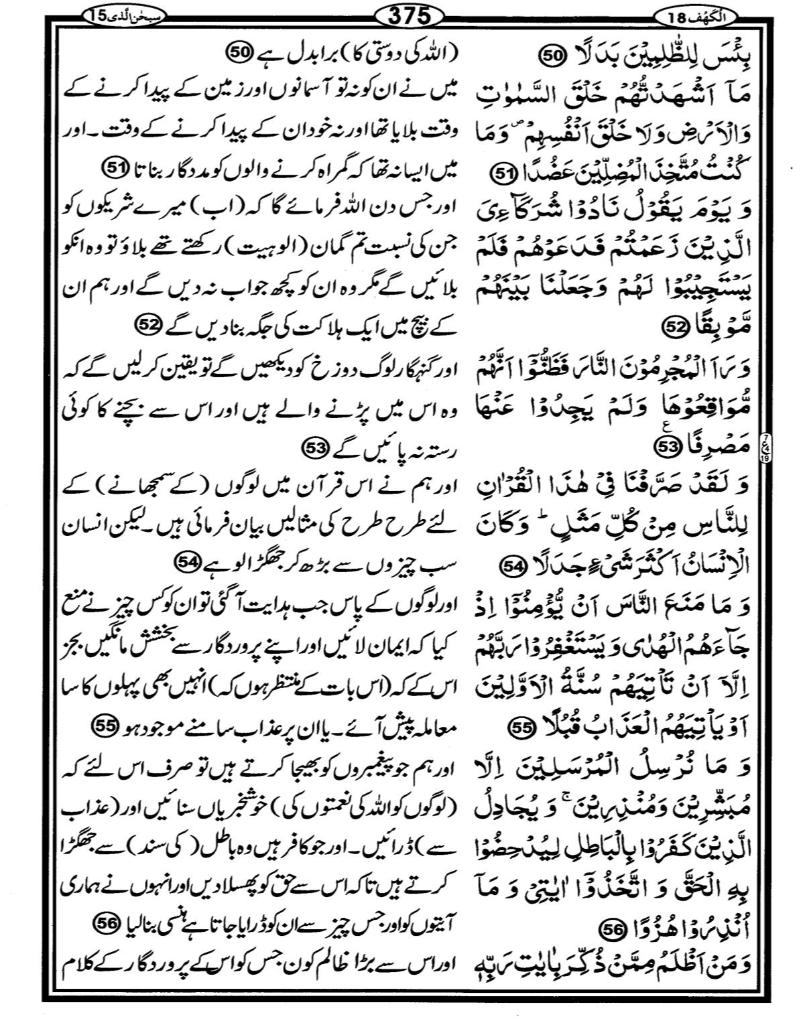 الكهف 18
375
سبحٰن الذی 15
بِئْسَ لِلظّٰلِمِيْنَ بَدَلًا 50
مَاۤ اَشْهَدْتُّهُمْ خَلْقَ السَّمٰوٰتِ
وَالْاَرْضِ وَلَا خَلْقَ اَنْفُسِهِمْ ۪ وَمَا
كُنْتُ مُتَّخِذَ الْمُضِلِّيْنَ عَضُدًا 51
وَ يَوْمَ يَقُوْلُ نَادُوْا شُرَكَآءِيَ
الَّذِيْنَ زَعَمْتُمْ فَدَعَوْهُمْ فَلَمْ
يَسْتَجِيْبُوْا لَهُمْ وَجَعَلْنَا بَيْنَهُمْ
مَّوْبِقًا 52
وَرَاَ الْمُجْرِمُوْنَ النَّارَ فَظَنُّوْۤا اَنَّهُمْ
مُّوَاقِعُوْهَا وَلَمْ يَجِدُوْا عَنْهَا
مَصْرِفًا 53 ع
وَ لَقَدْ صَرَّفْنَا فِيْ هٰذَا الْقُرْاٰنِ
لِلنَّاسِ مِنْ كُلِّ مَثَلٍ ؕ وَكَانَ
الْاِنْسَانُ اَكْثَرَ شَيْءٍ جَدَلًا 54
وَ مَا مَنَعَ النَّاسَ اَنْ يُّؤْمِنُوْۤا اِذْ
جَآءَهُمُ الْهُدٰى وَ يَسْتَغْفِرُوْا رَبَّهُمْ
اِلَّاۤ اَنْ تَاْتِيَهُمْ سُنَّةُ الْاَوَّلِيْنَ
اَوْ يَاْتِيَهُمُ الْعَذَابُ قُبُلًا 55
وَ مَا نُرْسِلُ الْمُرْسَلِيْنَ اِلَّا
مُبَشِّرِيْنَ وَمُنْذِرِيْنَ ۚ وَ يُجَادِلُ
الَّذِيْنَ كَفَرُوْا بِالْبَاطِلِ لِيُدْحِضُوْا
بِهِ الْحَقَّ وَ اتَّخَذُوْۤا اٰيٰتِيْ وَ مَاۤ
اُنْذِرُوْا هُزُوًا 56
وَمَنْ اَظْلَمُ مِمَّنْ ذُكِّرَ بِاٰيٰتِ رَبِّهٖ
(اللہ کی دوستی کا) برا بدل ہے 50
میں نے ان کو نہ تو آسمانوں اور زمین کے پیدا کرنے کے
وقت بلایا تھا اور نہ خود ان کے پیدا کرنے کے وقت۔ اور
میں ایسا نہ تھا کہ گمراہ کرنے والوں کو مددگار بناتا 51
اور جس دن اللہ فرمائے گا کہ (اب) میرے شریکوں کو
جن کی نسبت تم گمان (الوہیت) رکھتے تھے بلاؤ تو وہ انکو
بلائیں گے مگر وہ ان کو کچھ جواب نہ دیں گے اور ہم ان
کے بیچ میں ایک ہلاکت کی جگہ بنادیں گے 52
اور گنہگار لوگ دوزخ کو دیکھیں گے تو یقین کرلیں گے کہ
وہ اس میں پڑنے والے ہیں اور اس سے بچنے کا کوئی
رستہ نہ پائیں گے 53
اور ہم نے اس قرآن میں لوگوں (کے سمجھانے) کے
لئے طرح طرح کی مثالیں بیان فرمائی ہیں۔ لیکن انسان
سب چیزوں سے بڑھ کر جھگڑالو ہے 54
اور لوگوں کے پاس جب ہدایت آگئی تو ان کو کس چیز نے منع
کیا کہ ایمان لائیں اور اپنے پروردگار سے بخشش مانگیں بجز
اس کے کہ (اس بات کے منتظر ہوں کہ) انہیں بھی پہلوں کا سا
معاملہ پیش آئے۔ یا ان پر عذاب سامنے موجود ہو 55
اور ہم جو پیغمبروں کو بھیجا کرتے ہیں تو صرف اس لئے کہ
(لوگوں کو اللہ کی نعمتوں کی) خوشخبریاں سنائیں اور (عذاب
سے) ڈرائیں۔ اور جو کافر ہیں وہ باطل (کی سند) سے جھگڑا
کرتے ہیں تاکہ اس سے حق کو پھسلا دیں اور انہوں نے ہماری
آیتوں کو اور جس چیز سے ان کو ڈرایا جاتا ہے ہنسی بنا لیا 56
اور اس سے بڑا ظالم کون جس کو اس کے پروردگار کے کلام